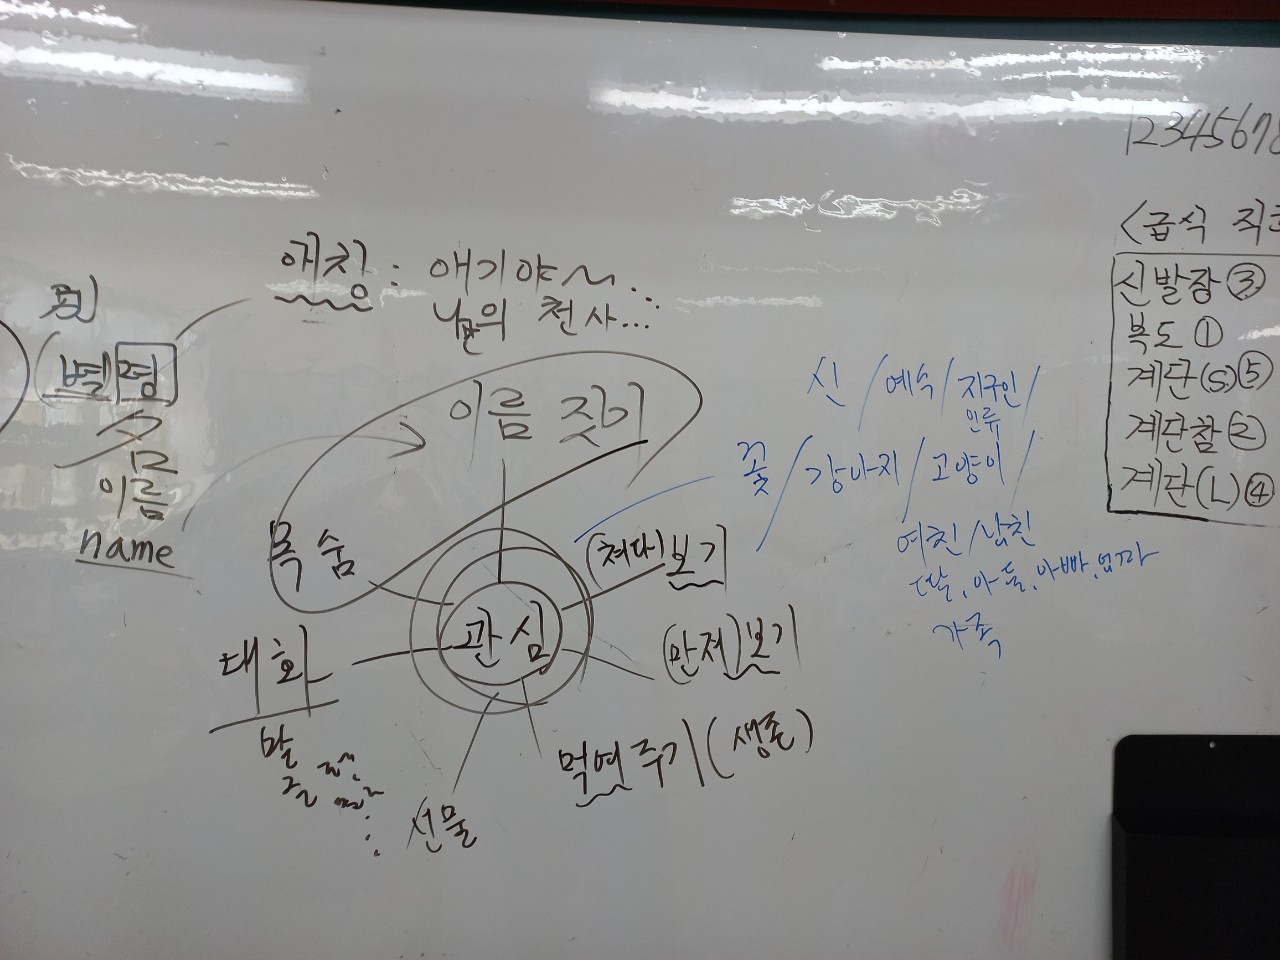 애칭 : 애기야~...
나의 천사...
별명
이름
name
이름 짓기
목숨
관심
대화
말
글
선물
(쳐다)보기
(만져)보기
먹여주기(생존)
신/예수/지구인/
인류
꽃/강아지/고양이/
여친/남친
딸, 아들, 아빠, 엄마
가족
12345678
<급식
신발장③
복도①
계단(S)⑤
계단참②
계단(L)④